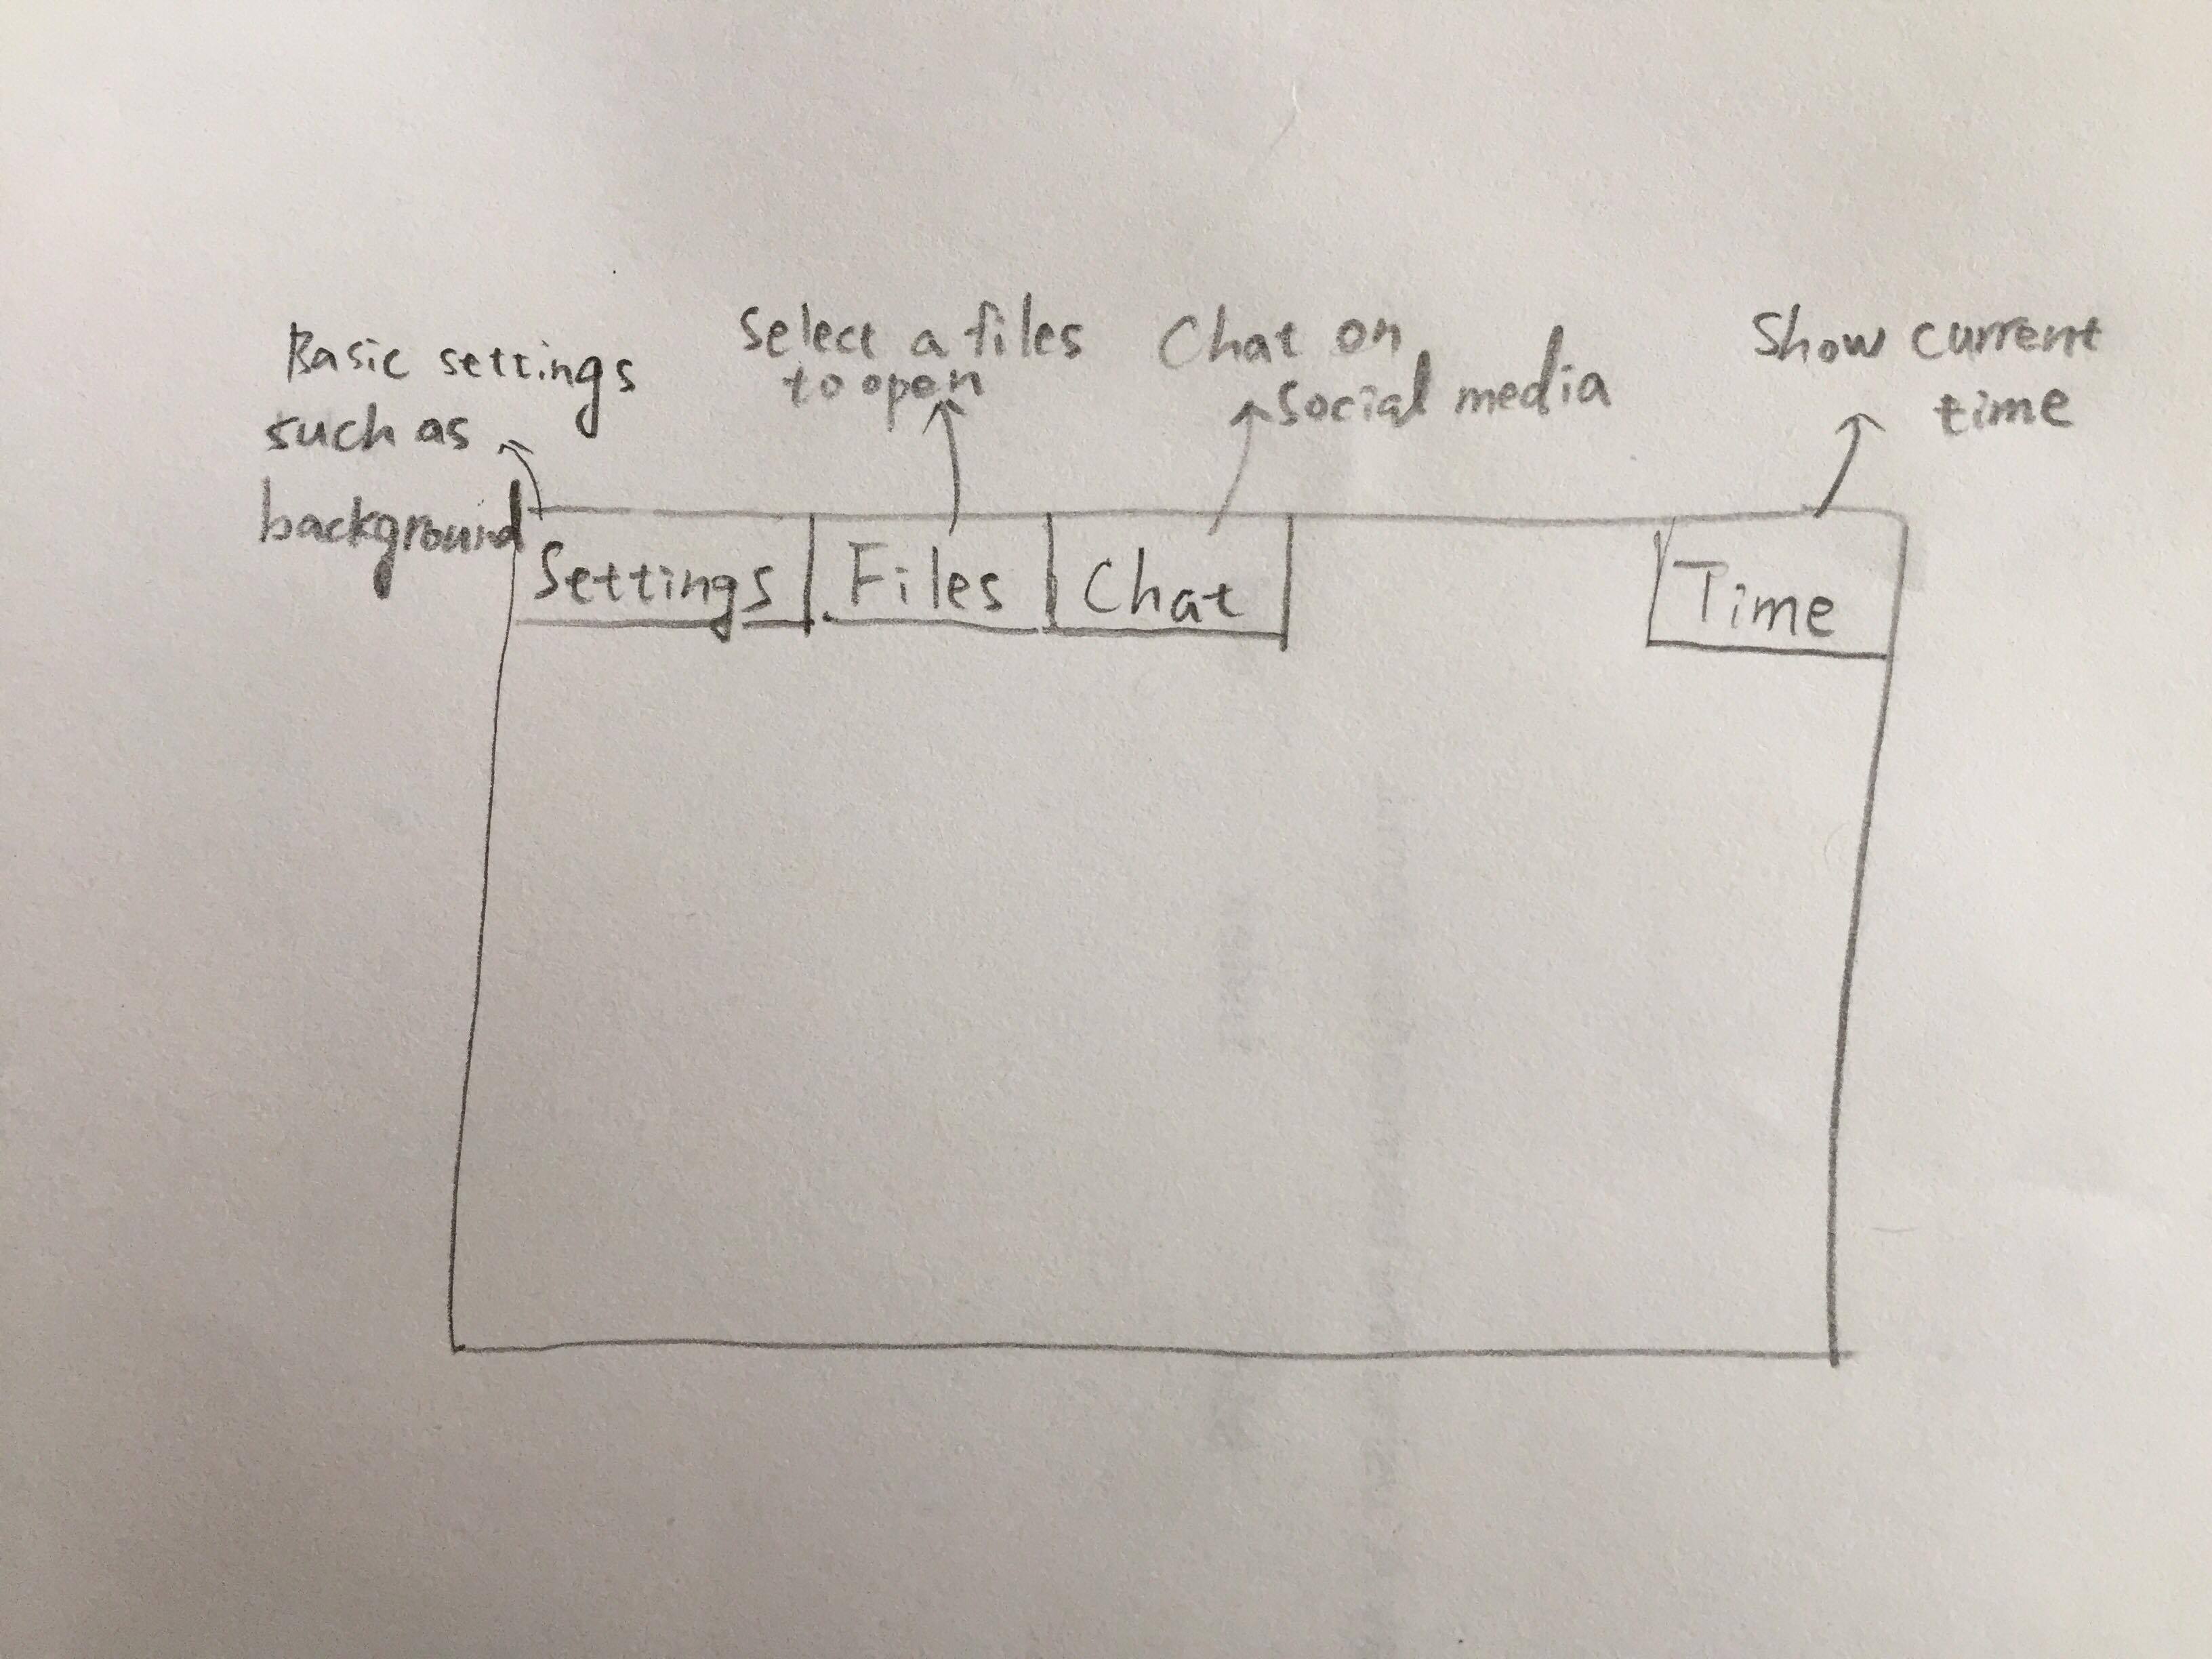 Basic settings
such as
background
Select a files
to open
Chat on
social media
Show current
time
Settings
Files
Chat
Time